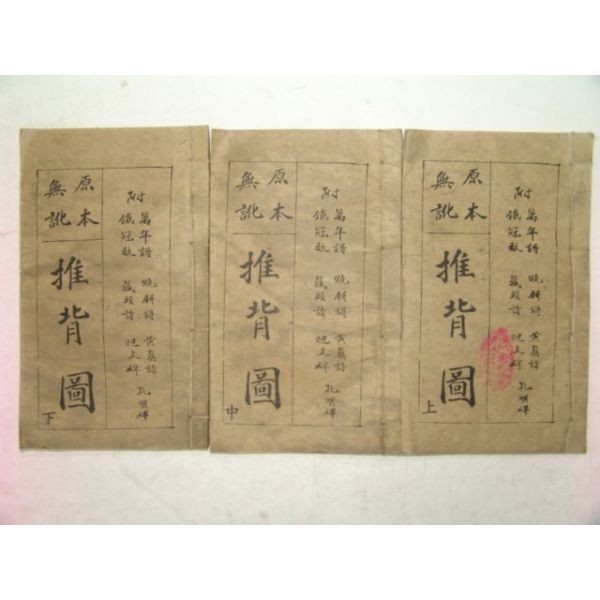 附
萬年謌 燒餅謌 黃蘗詩 孔明碑
鐵冠數 藏頭詩
原本
無訛
推背圖
上
附
萬年謌 燒餅謌 黃蘗詩 孔明碑
鐵冠數 藏頭詩
原本
無訛
推背圖
中
附
萬年謌 燒餅謌 黃蘗詩 孔明碑
鐵冠數 藏頭詩
原本
無訛
推背圖
下